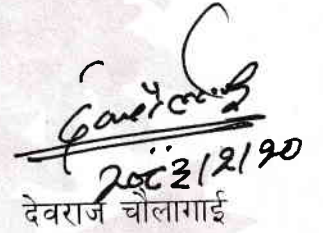 २०८३/२/२०
देवराज चौलागाई